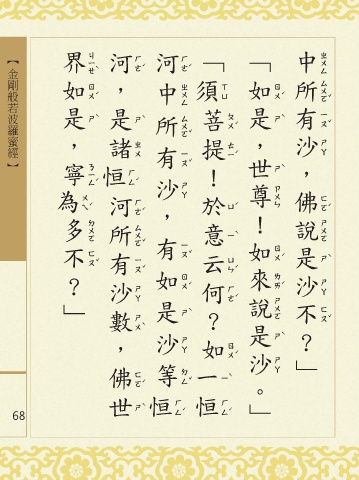 中所有沙，佛說是沙不？」
「如是，世尊！如來說是沙。」
「須菩提！於意云何？如一恒
河中所有沙，有如是沙等恒
河，是諸恒河所有沙數，佛世
界如是，寧為多不？」
【金剛般若波羅蜜經】
68